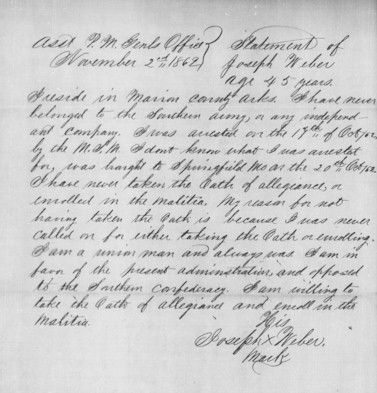 Asst P. M. Genls Office} Statement of
November 2nd 1862 Joseph Weber
age 45 years.
I reside in Marion county Arks. I have never
belonged to the Southern army, or any independ
ant company. I was arrested on the 17th of Oct/62
by the M.S.M. I dont know what I was arrestat
for, was baught to Springfield Mo on the 20th Oct/62
I have never taken the Oath of allegiance, or
enrolled in the malitia. My reason for not
having taken the Oath is because I was never
called on for either taking the Oath or enrolling.
I am a union man and always was. I am in
favor of the present administration, and opposed
to the Southern Confederacy. I am willing to
take the Oath of allegiance and enroll in the
malitia.
His
Joseph X Weber.
Mark